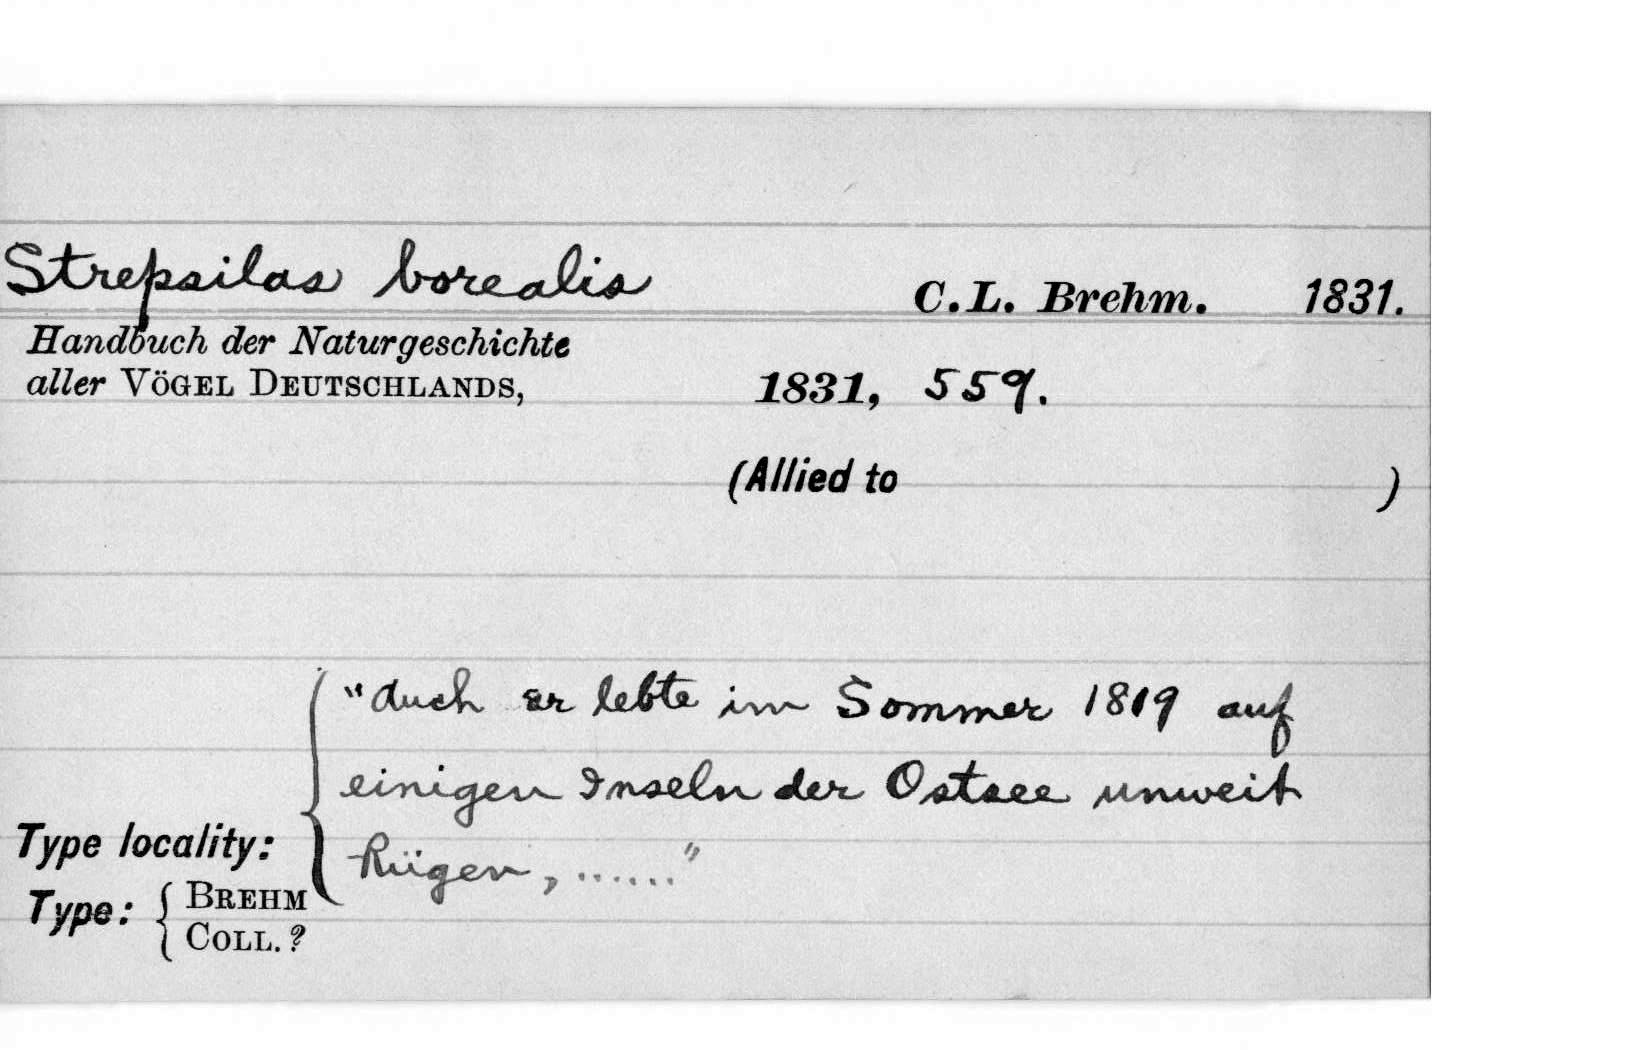 Strepsilas borealis C.L. Brehm. 1831.
Handbuch der Naturgeschichte
aller VÖGEL DEUTSCHLANDS, 1831, 559.
(Allied to )
"Auch er lebte im Sommer 1819 auf
einigen Inseln der Ostsee unweit
Type locality: Rügen, ......"
Type: { BREHM
COLL. ?